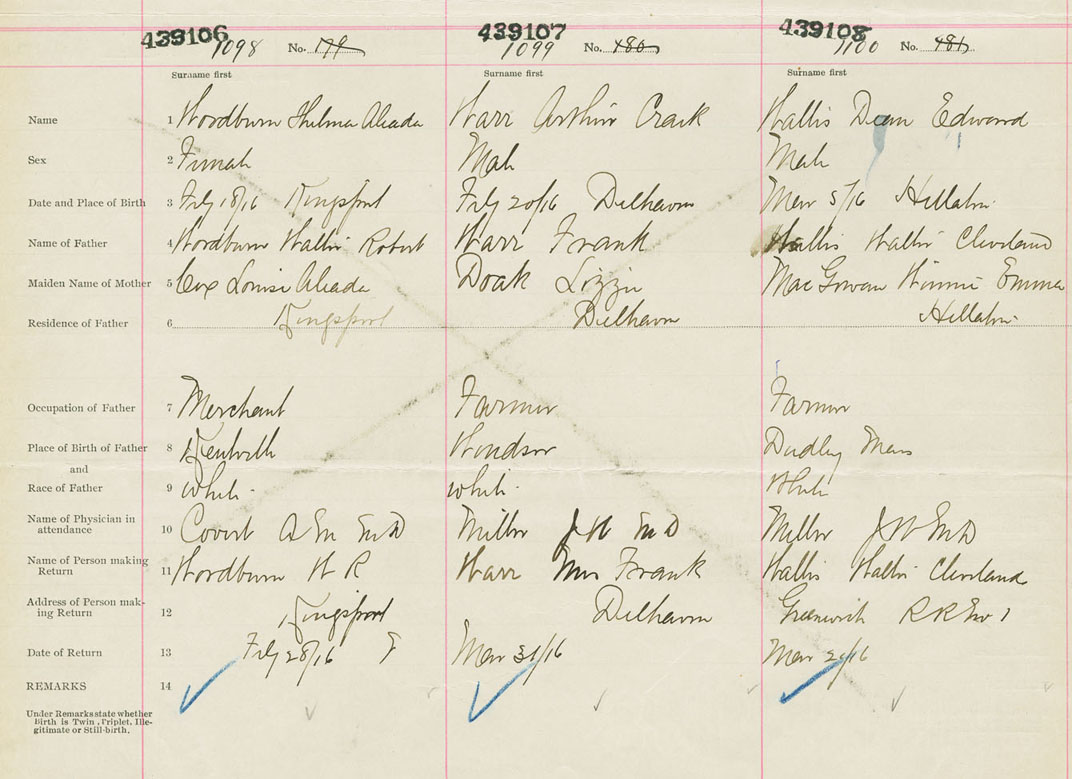 439106 439107 439108
1098 No. 179 1099 No. 180 1100 No. 181
Surname first Surname first Surname first
Name 1 Woodburn Thelma Aleada Warr Arthur Craik Wallis Dean Edward
Sex 2 Female Male Male
Date and Place of Birth 3 Feby 18/16 Kingsport Feby 20/16 Delhaven Mar 5/16 Hillaton
Name of Father 4 Woodburn Walter Robert Warr Frank Wallis Walter Cleveland
Maiden Name of Mother 5 Cox Louise Aleada Doak Lizzie MacGowan Winnie Emma
Residence of Father 6 Kingsport Delhaven Hillaton
Occupation of Father 7 Merchant Farmer Farmer
Place of Birth of Father 8 Kentville Windsor Dudley Mass
and
Race of Father 9 White White White
Name of Physician in
attendance 10 Covert A M M D Miller J W M D Miller J W M D
Name of Person making
Return 11 Woodburn W R Warr Mrs Frank Wallis Walter Cleveland
Address of Person mak-
ing Return 12 Kingsport Delhaven Greenwich R R No 1
Date of Return 13 Feby 28/16 Mar 31/16 Mar
REMARKS 14
Under Remarks state whether
Birth is Twin, Triplet, Ille-
gitimate or Still-birth.